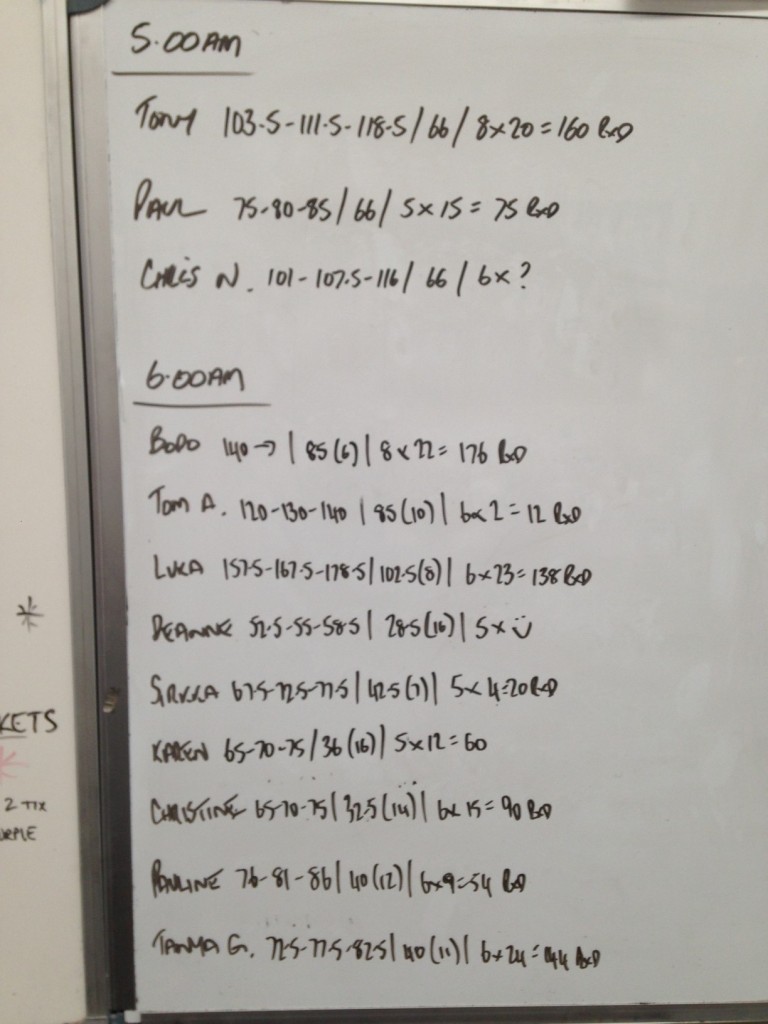 5.00AM
TONY 103.5-111.5-118.5/66/8x20=160 RxD
PAUL 75-80-85/66/5x15=75 RxD
CHRIS N. 101-107.5-116/66/6x?
6.00AM
BODO 140→|85(6)|8x22=176 RxD
TOM A. 120-130-140|85(10)|6x2=12 RxD
LUKA 157.5-167.5-178.5|102.5(8)|6x23=138 RxD
DEANNE 52.5-55-58.5|28.5(16)|5x
SIRKKA 67.5-72.5-77.5|42.5(7)|5x4=20 RxD
KAREN 65-70-75/36(16)|5x12=60
CHRISTINE 65-70-75|32.5(14)|6x15=90 RxD
PAULINE 76-81-86|40(12)|6x9=54 RxD
G. 72.5-77.5-82.5|40(11)|6x24=144 RxD
KETS
2 TIX
URPLE